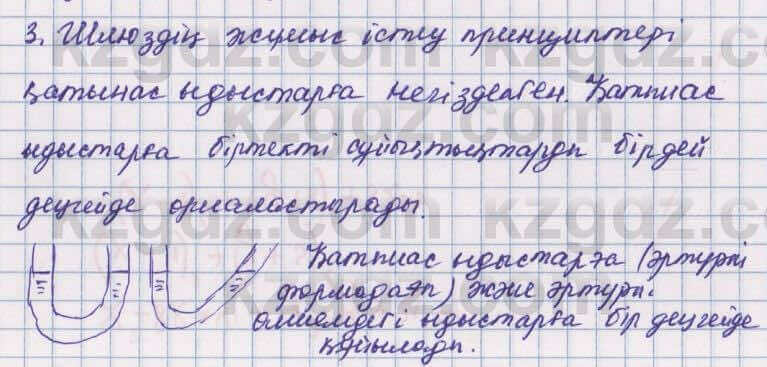 3. Шлюздің жұмыс істеу принциптері
қатынас ыдыстарға негізделген. Қатынас
ыдыстарға біртекті сұйықтықтарды бірдей
деңгейде орналастырады.
Қатынас ыдыстарға (әртүрлі
формадағы) және әртүрлі
өлшемдегі ыдыстарға бір деңгейде
құйылады.
kzgdz.com